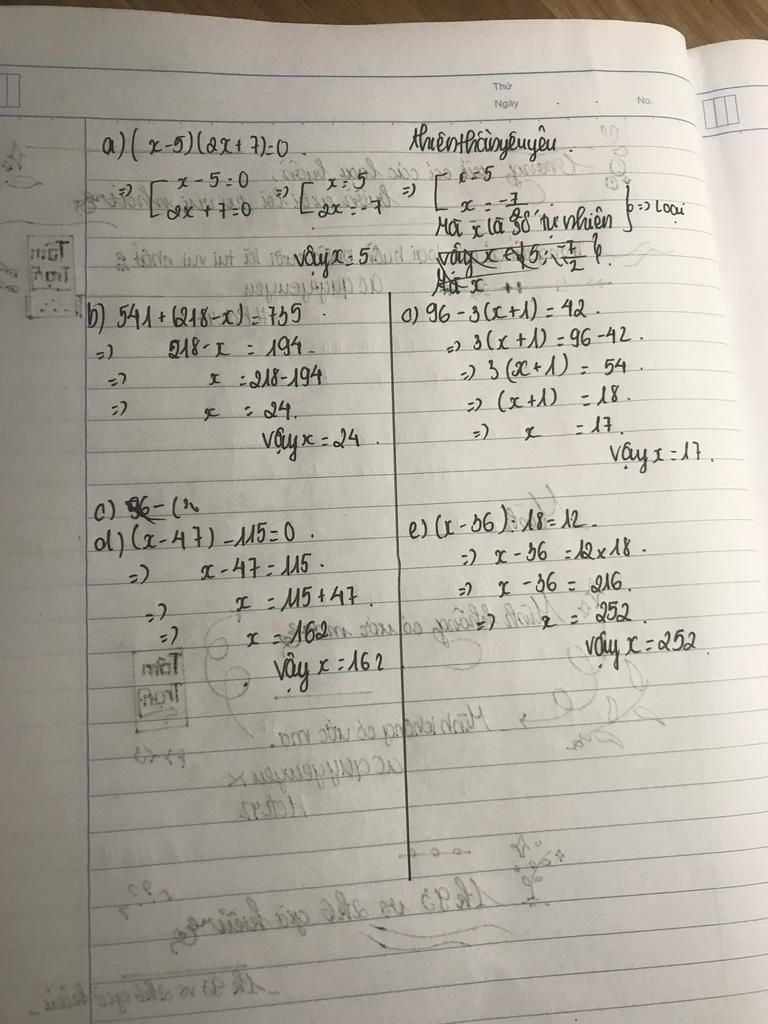 Thứ
Ngày
No.
a) (x-5)(2x+7)=0
thiênthầnyêuyêu.
=> [ x-5=0 => [ x=5 => [ x=5
2x+7=0 2x=-7 x=-7/2
Mà x là số tự nhiên } => Loại
vậy x=5
vậy x ∈ {5; -7/2}.
Mà x
b) 541+(218-x)=735.
=> 218-x = 194
=> x =218-194
=> x = 24.
vậy x = 24.
c) 96-3(x+1)=42.
=> 3(x+1)=96-42.
=> 3(x+1) = 54
=> (x+1) =18.
=> x =17.
vậy x=17.
c) 96-(
d) (x-47)-115=0.
=) x-47=115.
=> x =115+47.
=> x =162
vậy x=162
e) (x-36):18=12.
=> x-36 =12x18.
=> x-36 = 216.
=> x = 252.
vậy x=252.